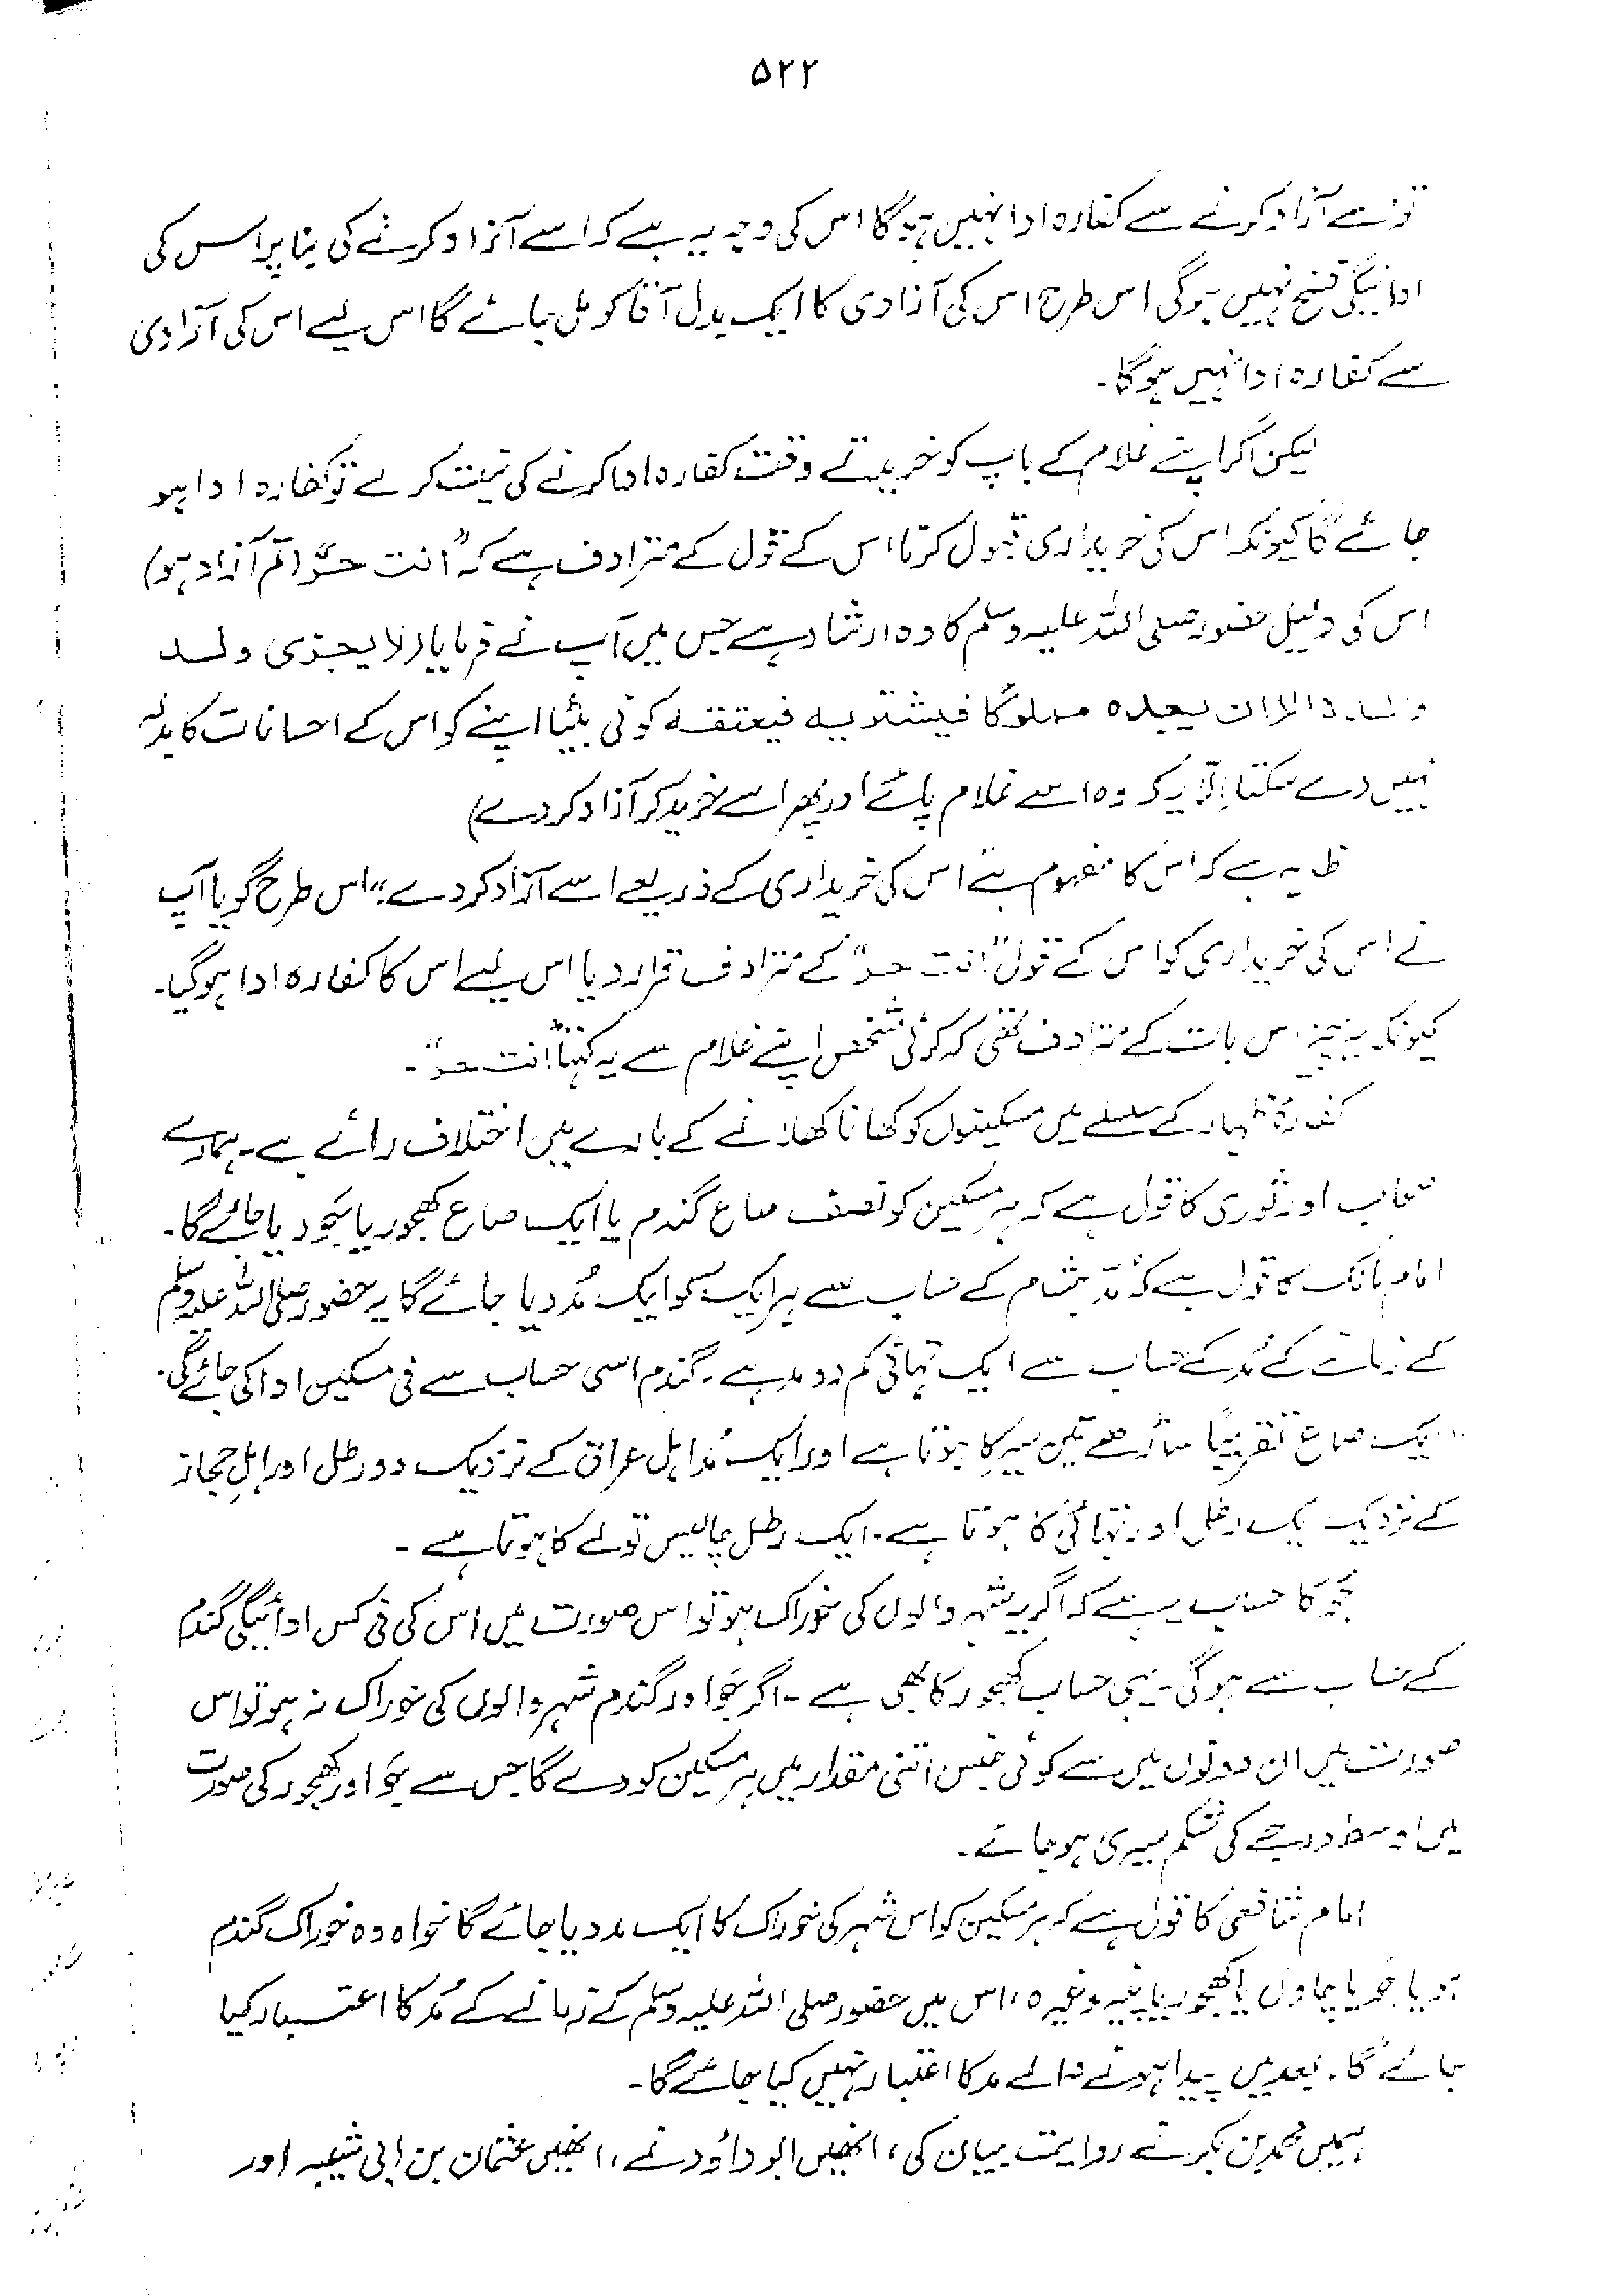 ۵۲۲
تو اسے آزاد کرنے سے کفارہ ادا نہیں ہوگا اس کی وجہ یہ ہے کہ اسے آزاد کرنے کی بنا پر اس کی
ادائیگی فسخ نہیں ہوگی اس طرح اس کی آزادی کا ایک بدل آقا کو مل جائے گا اس لیے اس کی آزادی
سے کفارہ ادا نہیں ہوگا۔
لیکن اگر اپنے غلام کے باپ کو خریدتے وقت کفارہ ادا کرنے کی نیت کرے تو کفارہ ادا ہو
جائے گا کیونکہ اس کی خریداری قبول کرنا اس کے قول کے مترادف ہے کہ "انت حرّ" (تم آزاد ہو)
اس کی دلیل حضور صلی اللہ علیہ وسلم کا وہ ارشاد ہے جس میں آپ نے فرمایا (لا یجزی ولد
والدہ الا ان یجدہ مملوکا فیشتریہ فیعتقہ کوئی بیٹا اپنے کو اس کے احسانات کا بدلہ
نہیں دے سکتا اِلّا یہ کہ وہ اسے غلام پائے اور پھر اسے خرید کر آزاد کر دے)
ظ یہ ہے کہ اس کا مفہوم ہے "اس کی خریداری کے ذریعے اسے آزاد کر دے"۔ اس طرح گویا آپ
نے اس کی خریداری کو اس کے قول "انت حرّ" کے مترادف قرار دیا اس لیے اس کا کفارہ ادا ہوگیا۔
کیونکہ یہ چیز اس بات کے مترادف تھی کہ کوئی شخص اپنے غلام سے یہ کہتا "انت حرّ"۔
کفارۂ ظہار کے سلسلے میں مسکینوں کو کھانا کھلانے کے بارے میں اختلاف رائے ہے۔ ہمارے
اصحاب اور ثوری کا قول ہے کہ ہر مسکین کو نصف صاع گندم یا ایک صاع کھجور یا جَو دیا جائے گا۔
امام مالک کا قول ہے کہ مُدّ ہشام کے حساب سے ہر ایک کو ایک مُد دیا جائے گا یہ حضور صلی اللہ علیہ وسلم
کے زمانے کے مُد کے حساب سے ایک تہائی کم دو مد ہے۔ گندم اسی حساب سے فی مسکین ادا کی جائے گی۔
ایک صاع تقریبًا ساڑھے تین سیر کا ہوتا ہے اور ایک مُد اہل عراق کے نزدیک دو رطل اور اہلِ حجاز
کے نزدیک ایک رطل اور تہائی کا ہوتا ہے۔ ایک رطل چالیس تولے کا ہوتا ہے۔
جَو کا حساب یہ ہے کہ اگر یہ شہر والوں کی خوراک ہو تو اس صورت میں اس کی فی کس ادائیگی گندم
کے حساب سے ہوگی۔ یہی حساب کھجور کا بھی ہے۔ اگر جَو اور گندم شہر والوں کی خوراک نہ ہو تو اس
صورت میں ان دونوں میں سے کوئی جنس اتنی مقدار میں ہر مسکین کو دے گا جس سے جَو اور کھجور کی صورت
میں اوسط درجے کی شکم سیری ہو جائے۔
امام شافعی کا قول ہے کہ ہر مسکین کو اس شہر کی خوراک کا ایک مد دیا جائے گا خواہ وہ خوراک گندم
ہو یا جَو یا چاول یا کھجور یا پنیر وغیرہ، اس میں حضور صلی اللہ علیہ وسلم کے زمانے کے مُد کا اعتبار کیا
جائے گا۔ بعد میں پیدا ہونے والے مد کا اعتبار نہیں کیا جائے گا۔
ہمیں محمد بن بکر نے روایت بیان کی، انھیں ابو داؤد نے، انھیں عثمان بن ابی شیبہ اور